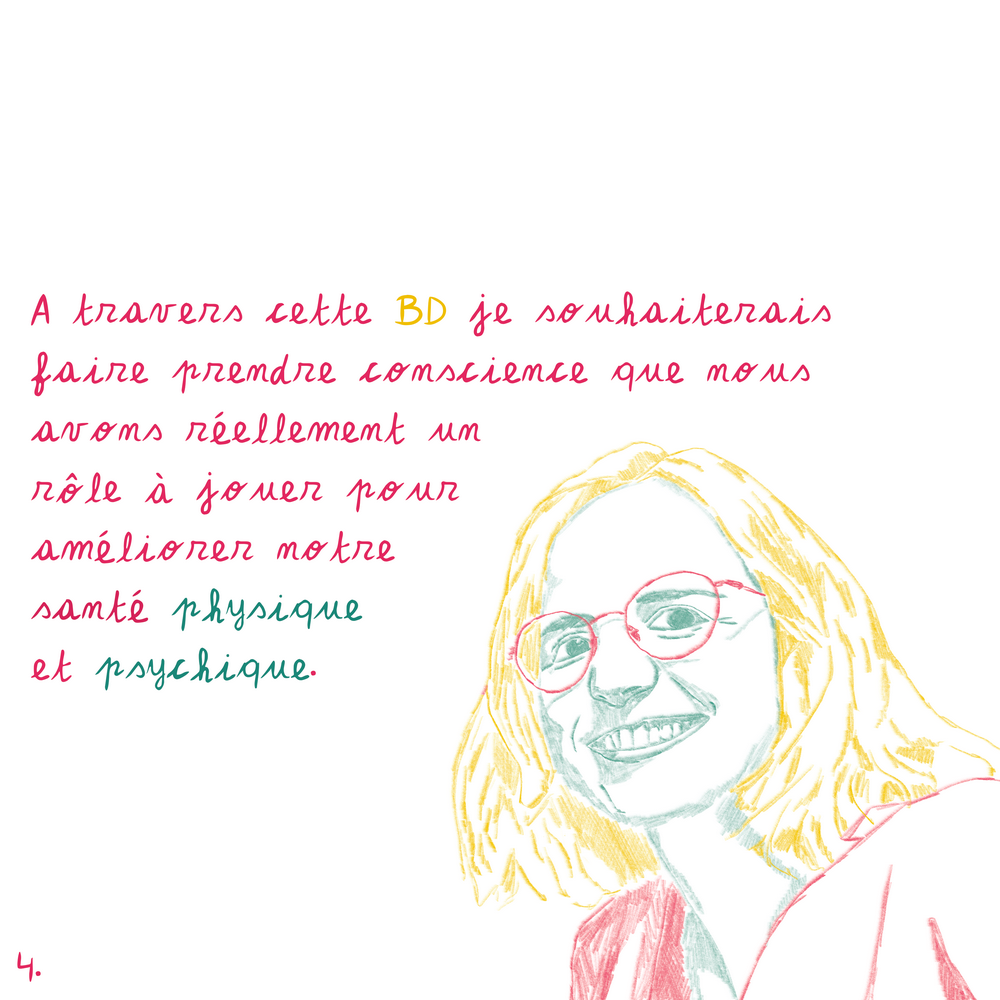 A travers cette BD je souhaiterais
faire prendre conscience que nous
avons réellement un
rôle à jouer pour
améliorer notre
santé physique
et psychique.
4.